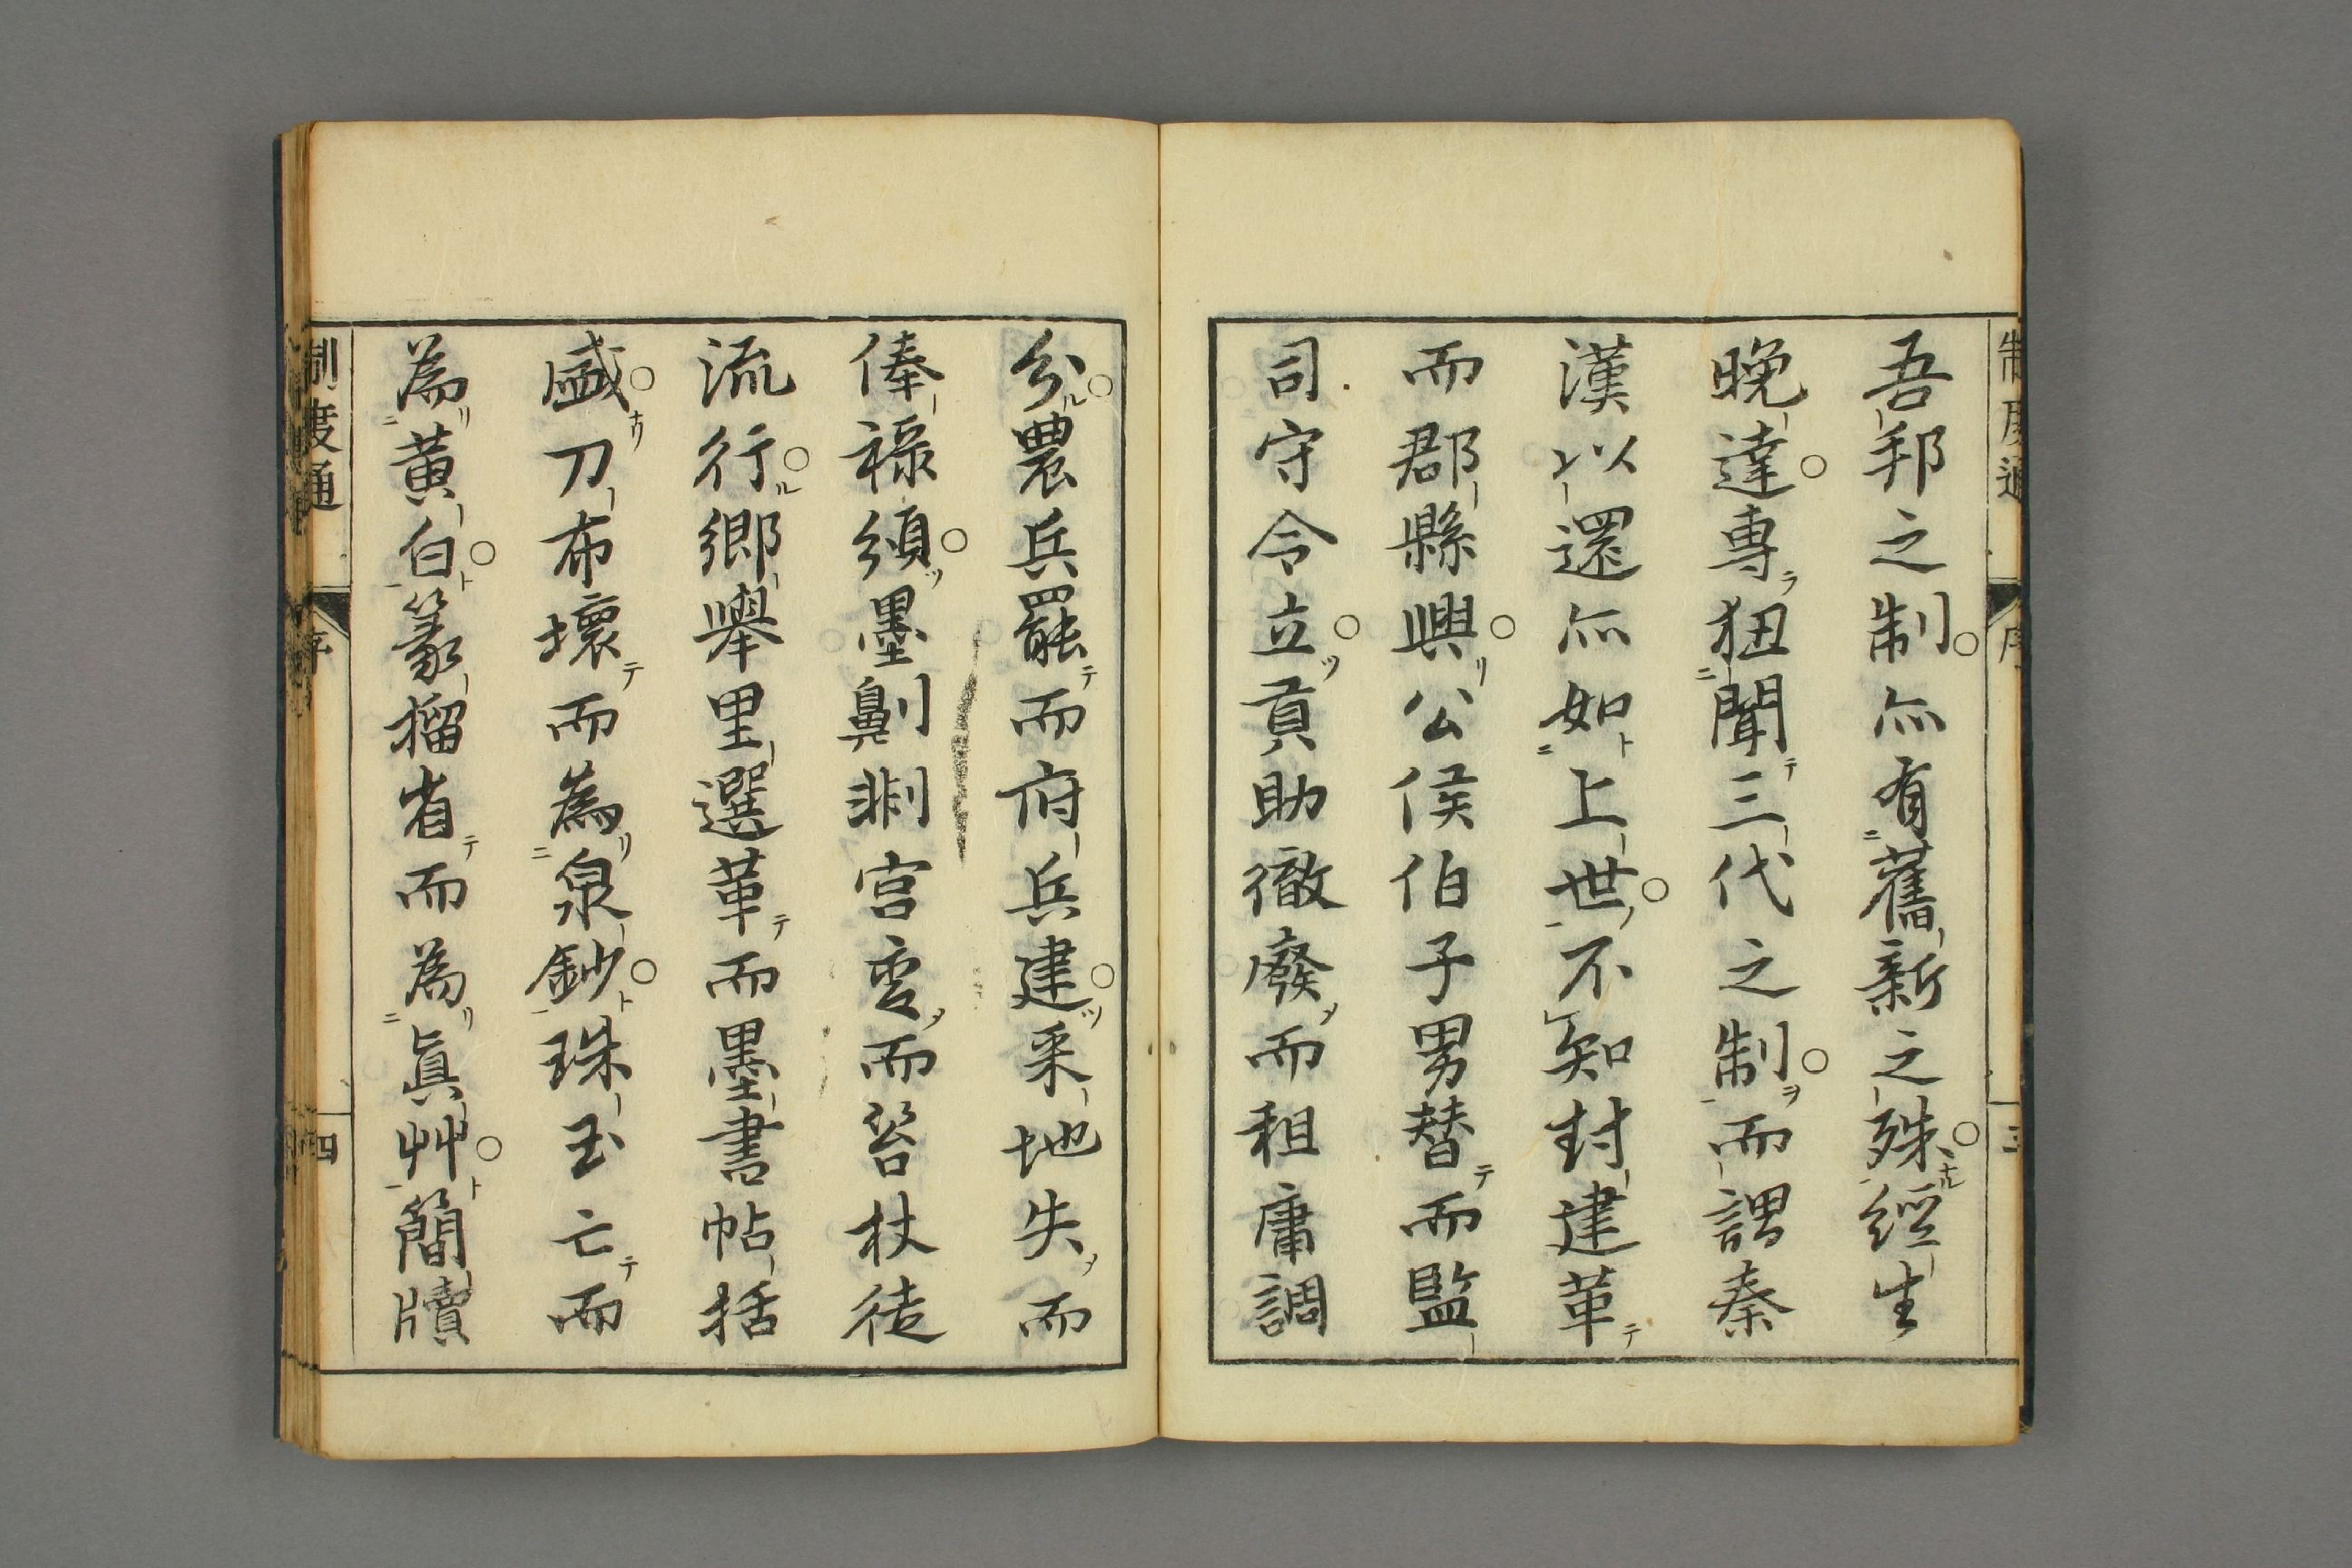 吾邦之制亦有舊新之殊經生
晩達專狃聞三代之制而謂秦
漢以還亦如上世不知封建革
而郡縣興公侯伯子男替而監
司守令立貢助徹廢而租庸調
分農兵罷而府兵建采地失而
俸祿頒墨劓剕宮變而笞杖徒
流行鄉舉里選革而墨書帖括
盛刀布壞而為泉鈔珠玉亡而
為黃白篆摺省而為眞艸簡牘
制度通
序
四